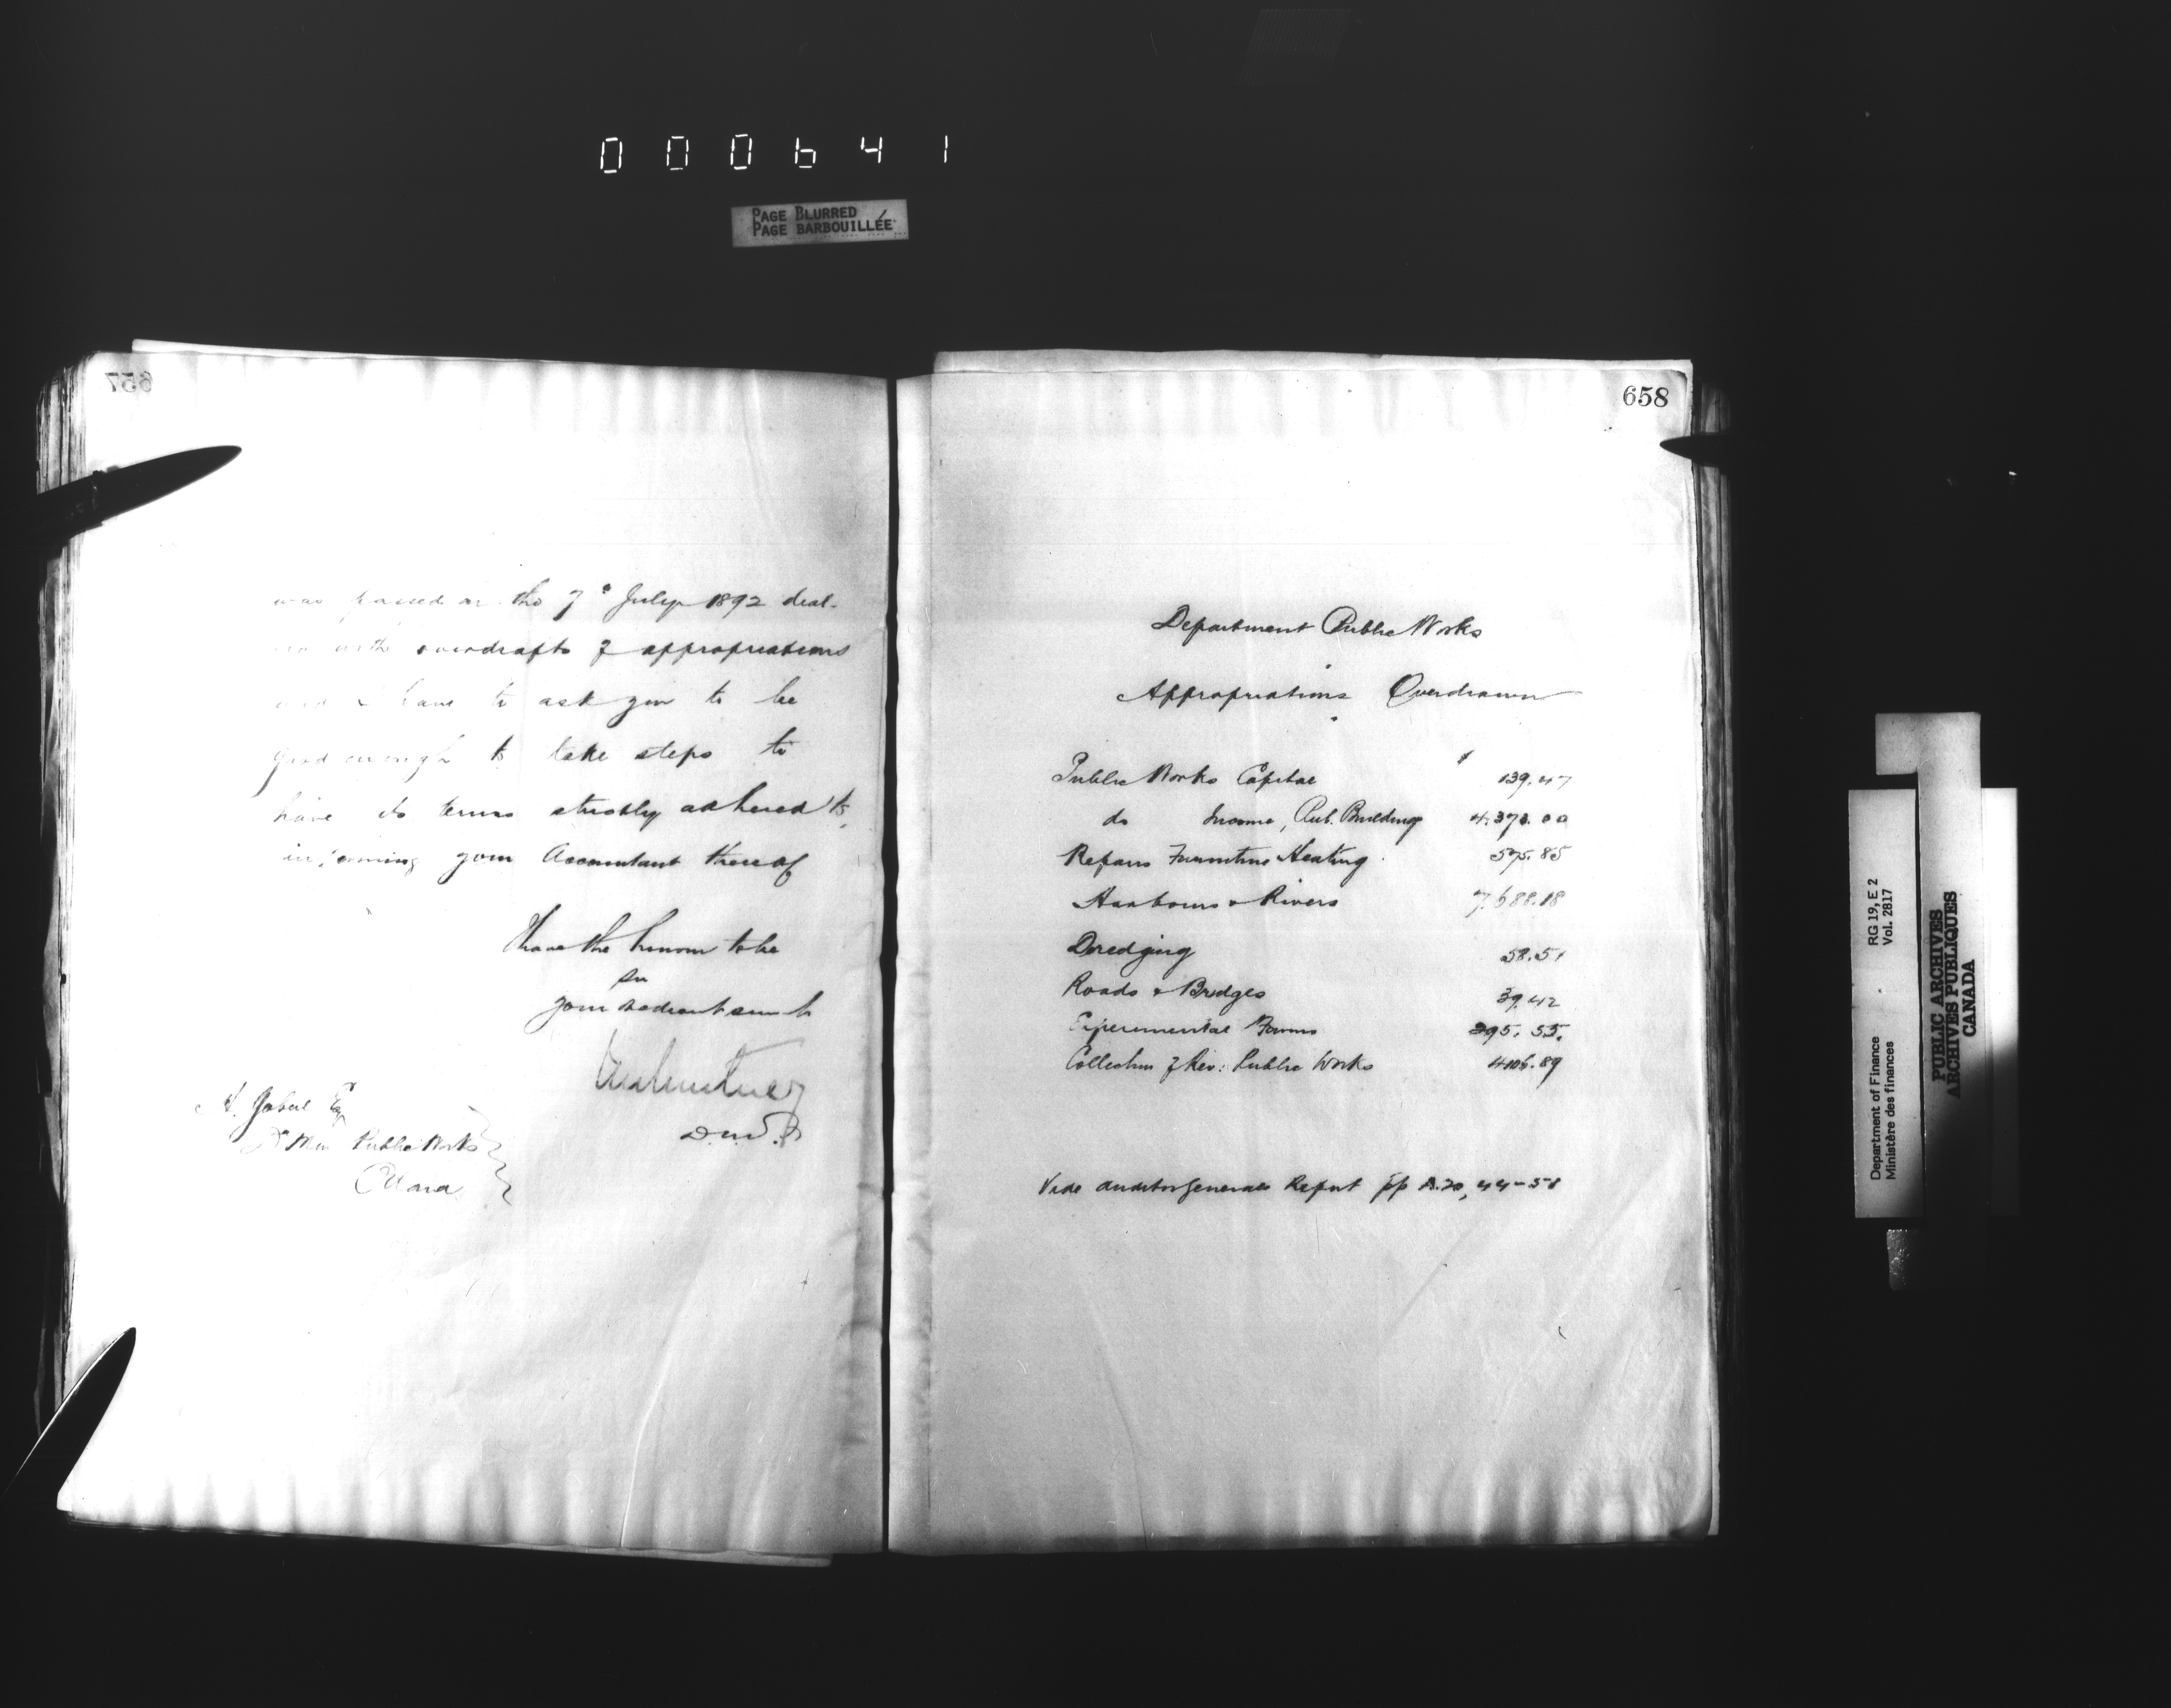 000641
PAGE BLURRED
PAGE BARBOUILLÉE
657
was passed on the 7th July 1892 deal-
ing with overdrafts of appropriations
and I have to ask you to be
good enough to take steps to
have its terms strictly adhered to,
informing your Accountant thereof
I have the honour to be
Sir
your obedient servt
D.M.F.
A. Gobeil Esq
Dy Min Public Works
Ottawa
658
Department Public Works
Appropriations Overdrawn
$
Public Works Capital 139.47
do Income, Pub. Buildings 4.378.00
Repairs Furniture Heating 575.85
Harbours & Rivers 7.688.18
Dredging 58.51
Roads & Bridges 39.42
Experimental Farms 395.55.
Collection of Rev: Public Works 4106.89
Vide Auditor Generals Report pp A.20, 44-58
Department of Finance RG 19, E 2
Ministère des finances Vol. 2817
PUBLIC ARCHIVES
ARCHIVES PUBLIQUES
CANADA